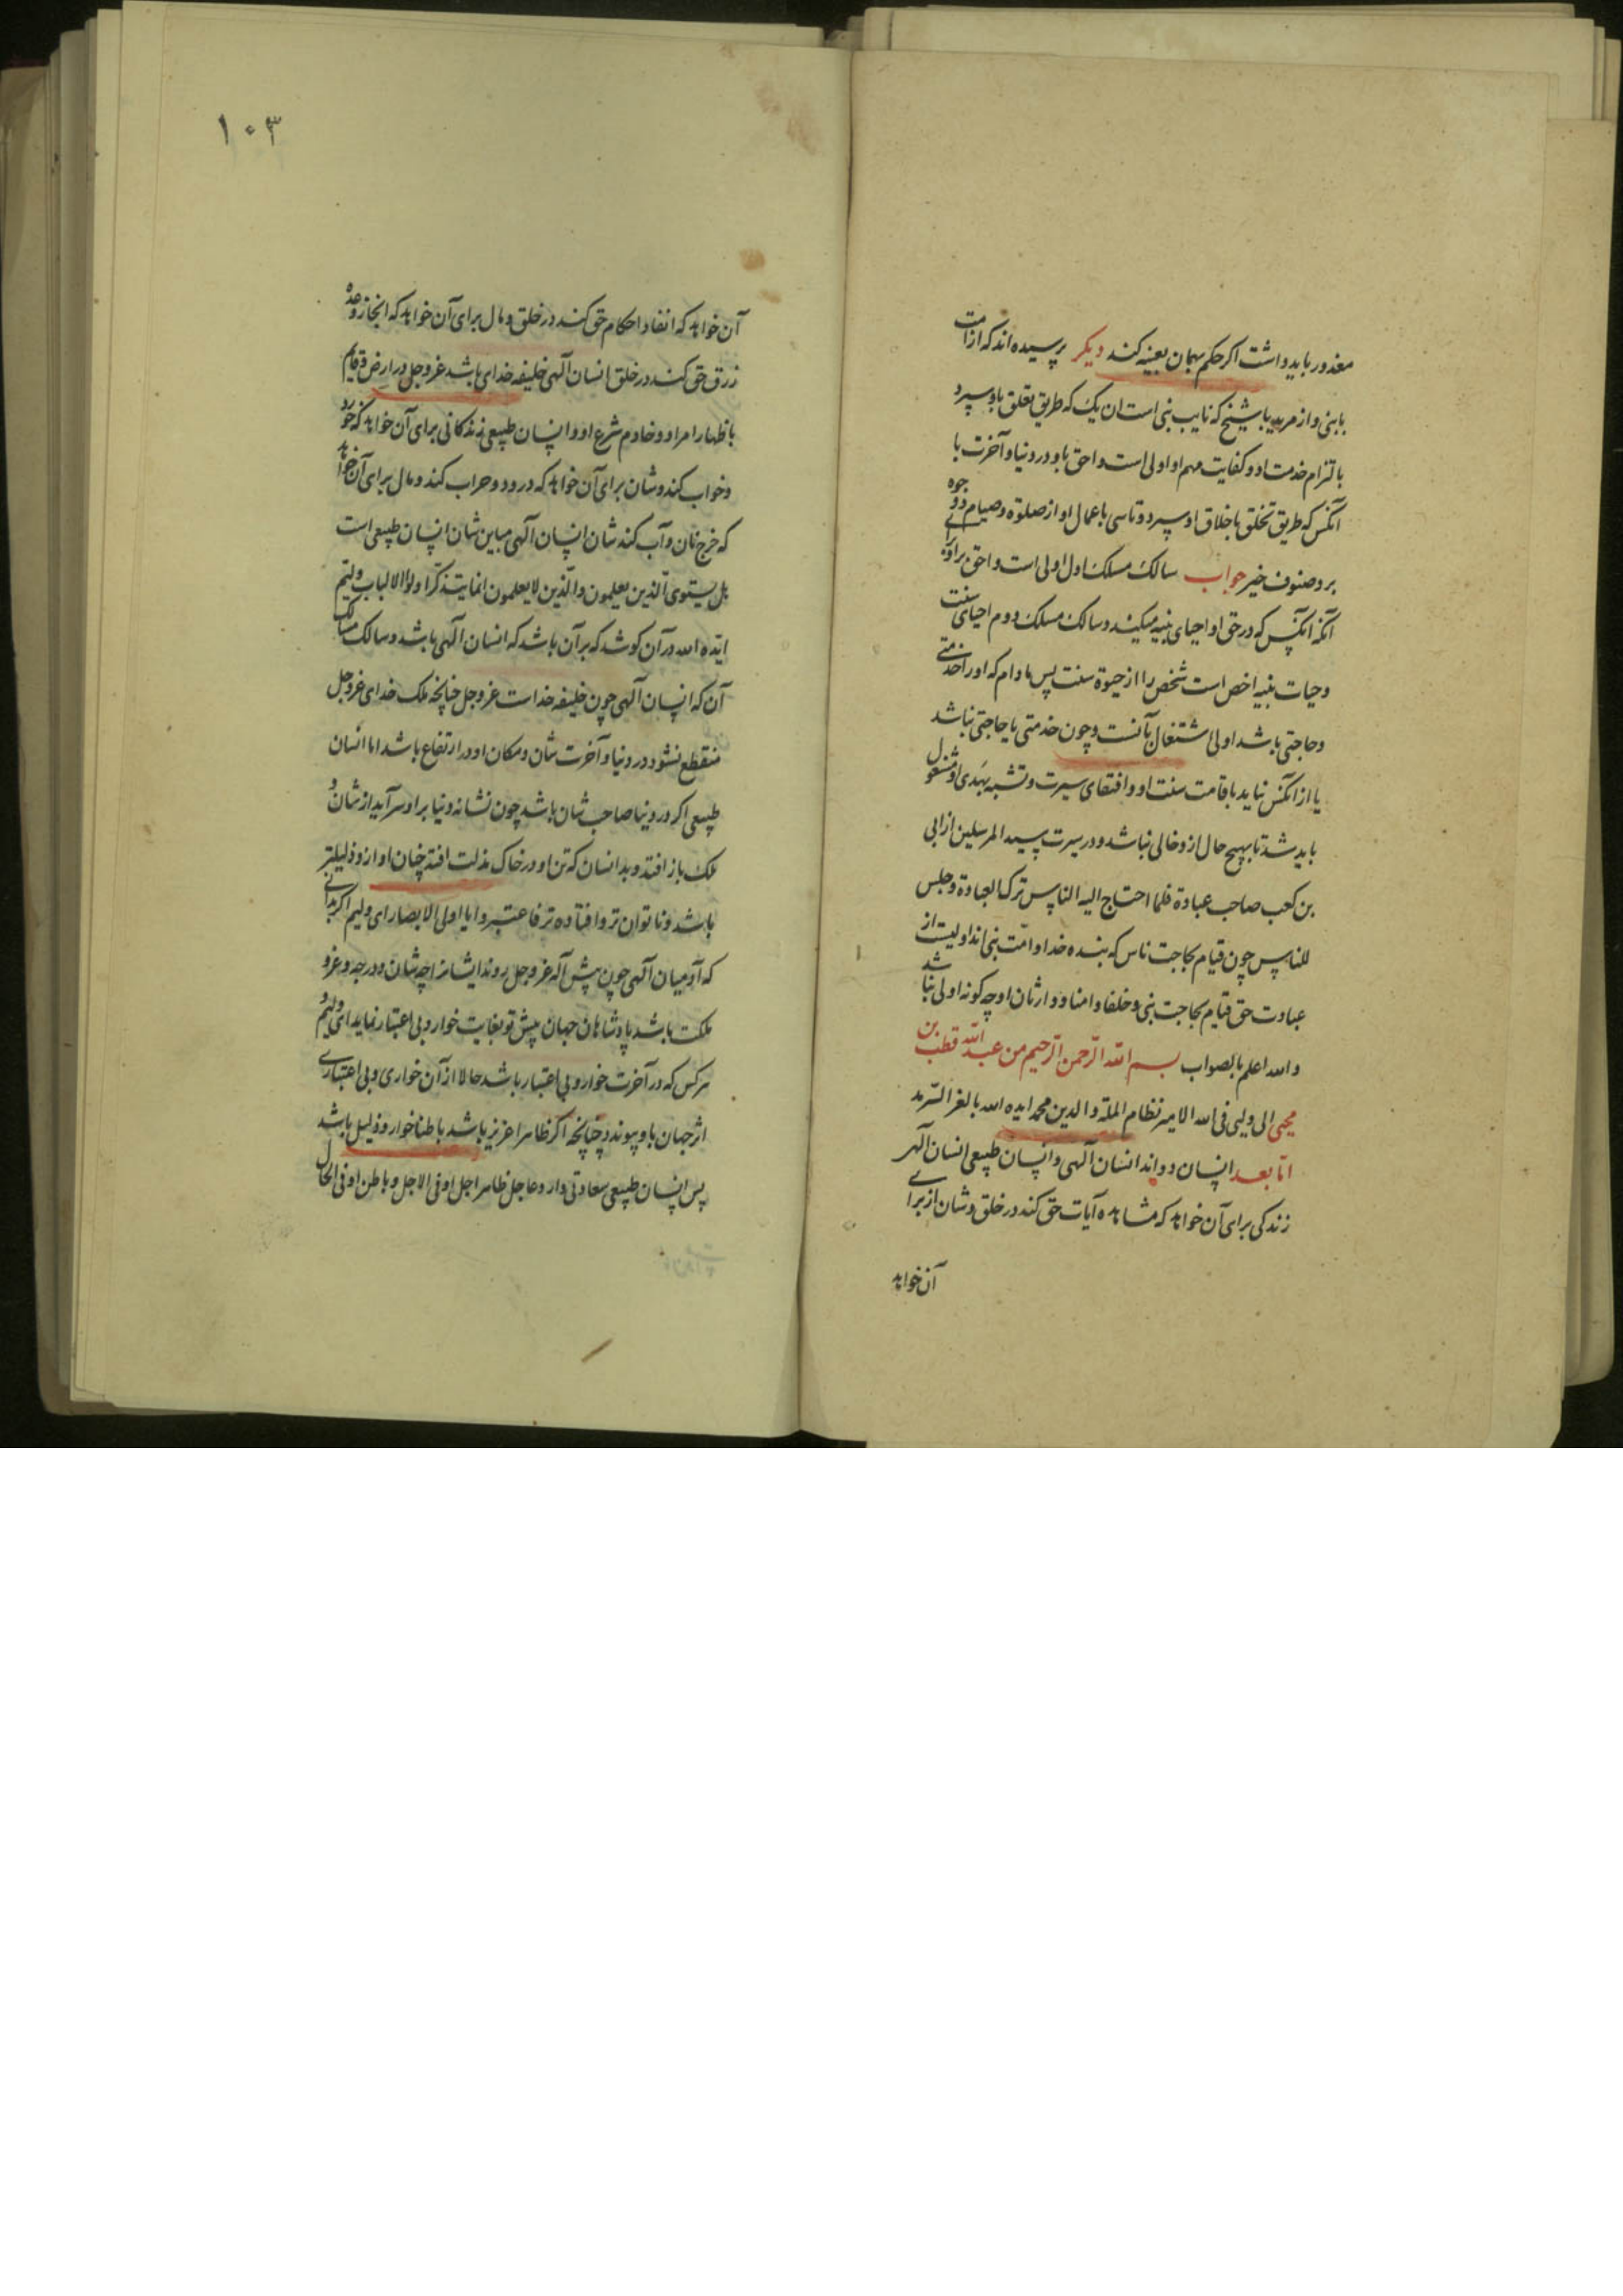 معذور باید داشت اگر حکم مهمان بعینه کند دیگر پرسیده اند که از امت
با نبی و از مرید با شیخ که نایب نبی است ان یک که طریق تعلق باو سپرد
با لتزام خدمت او و کفایت مهم او اولی است و احق باو در دنیا و آخرت یا
آنکس که طریق تخلق باخلاق او سپرد و تاسی باعمال او از صلوة و صیام و وجوه
بر و صنوف خیر جواب سالک مسلک اول اولی است و احق برای
آنکه آنکس که در حق او احیای بنیه میکند و سالک مسلک دوم احیای سنت
و حیات بنیه اخص است شخص را از حیوة سنت پس مادام که او را خدمتی
و حاجتی باشد اولی اشتغال بآنست و چون خدمتی یا حاجتی نباشد
یا از آنکس نیاید باقامت سنت او و اقتفای سیرت و تشبه بهدی او مشغول
باید شد تا بهیچ حال ازو خالی نباشد و در سیرت سید المرسلین از ابی
بن کعب صاحب عبادة فلما احتاج الیه الناس ترک العبادة و جلس
للناس چون قیام بحاجت ناس که بنده خدا و امت نبی اند اولیست از
عبادت حق قیام بحاجت نبی و خلفا و امنا و وارثان او چه کونه اولی نباشد
و الله اعلم بالصواب بسم الله الرحمن الرحیم من عبد الله قطب بن
محیی الی ولیی فی الله الامیر نظام الملة و الدین محمد ایده الله بالعز السرمد
اما بعد انسان دو اند انسان آلهی و انسان طبیعی انسان آلهی
زندکی برای آن خواهد که مشاهده آیات حق کند در خلق و شان از برای
آن خواهد
۱۰۳
آن خواهد که انفاد احکام حق کند در خلق و مال برای آن خواهد که انجاز وعده
رزق حق کند در خلق انسان آلهی خلیفه خدای باشد عز و جل در ارض و قایم
باظهار امر او و خادم شرع او و انسان طبیعی زندکانی برای آن خواهد که خورد
و خواب کند و شان برای آن خواهد که در ود و حراب کند و مال برای آن خواهد
که خرج نان و آب کند شان انسان آلهی مباین شان انسان طبیعی است
هل یستوی الذین یعلمون والذین لا یعلمون انما یتذکر اولوا الالباب ولیم
ایده الله در آن کوشد که بر آن باشد که انسان الهی باشد و سالک مسالک
آن که انسان آلهی چون خلیفه خداست عز و جل چنانچه ملک خدای عز و جل
منقطع نشود در دنیا و آخرت شان و مکان او در ارتفاع باشد اما انسان
طبیعی اکر در دنیا صاحب شان باشد چون نشانه دنیا براو سر آید از شان و
ملک باز افتد و بدانسان که تن او در خاک مذلت افتد چنان او ازو ذلیلتر
باشد و ناتوان تر و افتاده تر فاعتبروا یا اولی الابصار ای ولیم اکر بدانی
که آدمیان آلهی چون پیش آله عز و جل روند ایشانرا چه شان و درجه و عز و
مکنت باشد پادشاهان جهان پیش تو بغایت خوار و بی اعتبار نماید ای ولیم
هرکس که در آخرت خوار و بی اعتبار باشد حالا از آن خواری و بی اعتباری
اثر جهان باو پیوندد چنانچه اکر ظاهرا عزیز باشد باطنا خوار و ذلیل باشد
پس انسان طبیعی سعادتی دارد عاجل ظاهرا جل او فی الاجل و باطن او فی الحال